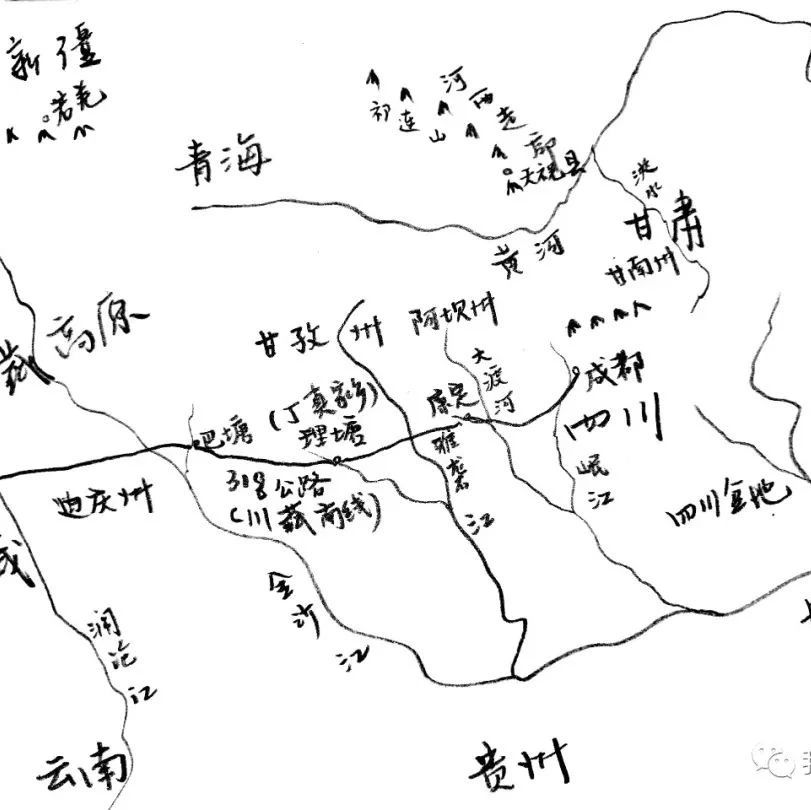 新疆
若羌
祁连山
河西走廊
天祝县
青海
洮水
甘肃
黄河
甘南州
高原
甘孜州
阿坝州
大渡河
成都
四川
康定
(丁真家乡)
理塘
巴塘
雅砻江
岷江
318公路
(川藏南线)
迪庆州
四川盆地
金沙江
澜沧江
云南
贵州